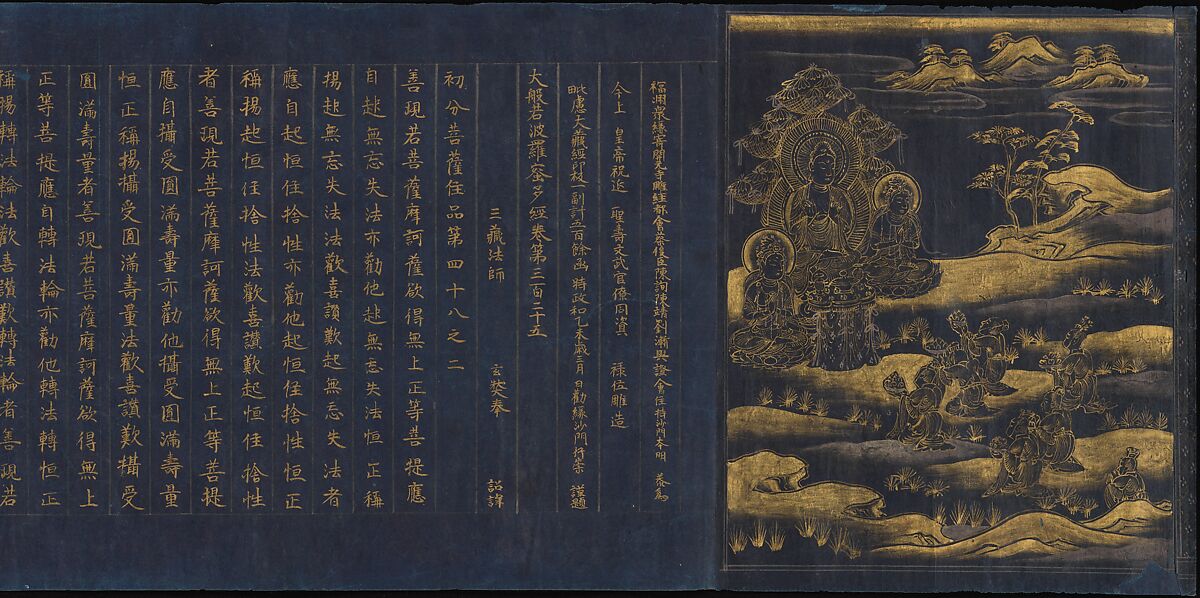 福州眾緣寄開元寺雕經都會蔡俊臣陳詢陳靖劉漸與證會住持沙門本明 恭為
今上 皇帝祝延 聖壽文武官僚同資 祿位雕造
毗盧大藏經印板一副計五百餘函 時政和乙未歲二月 日勸緣沙門行崇 謹題
大般若波羅蜜多經卷第三百二十五
三藏法師 玄奘奉 詔譯
初分菩薩住品第四十八之二
善現若菩薩摩訶薩欲得無上正等菩提應
自起無忘失法亦勸他起無忘失法恒正稱
揚起無忘失法法歡喜讚歎起無忘失法者
應自起恒住捨性亦勸他起恒住捨性恒正
稱揚起恒住捨性法歡喜讚歎起恒住捨性
者善現若菩薩摩訶薩欲得無上正等菩提
應自攝受圓滿壽量亦勸他攝受圓滿壽量
恒正稱揚攝受圓滿壽量法歡喜讚歎攝受
圓滿壽量者善現若菩薩摩訶薩欲得無上
正等菩提應自轉法輪亦勸他轉法輪恒正
稱揚轉法輪法歡喜讚歎轉法輪者善現若